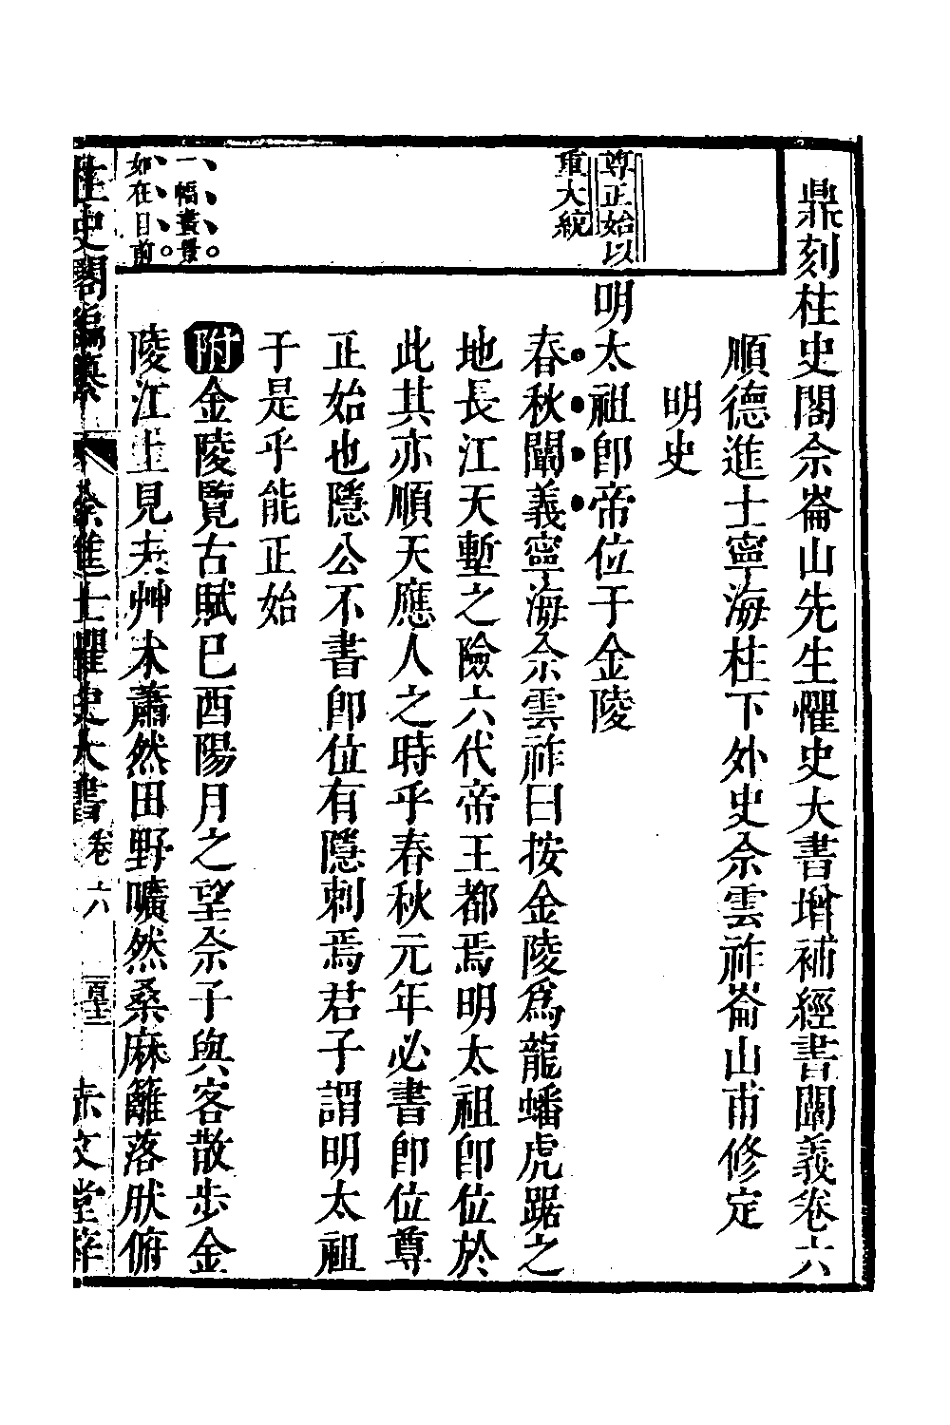 鼎刻柱史閣佘崙山先生懼史大書增補經書闡義卷六
順德進士寧海柱下外史佘雲祚崙山甫修定
明史
尊正始以
重大統
明太祖卽帝位于金陵
春秋闡義寧海佘雲祚曰按金陵爲龍蟠虎踞之
地長江天塹之險六代帝王都焉明太祖卽位於
此其亦順天應人之時乎春秋元年必書卽位尊
正始也隱公不書卽位有隱刺焉君子謂明太祖
于是乎能正始
一幅畫景
如在目前
附金陵覽古賦巳酉陽月之望佘子與客散步金
陵江上見夫艸木蕭然田野曠然桑麻籬落肰俯
柱史閣編纂
佘進士懼史大書
卷六
百十二
赤文堂梓